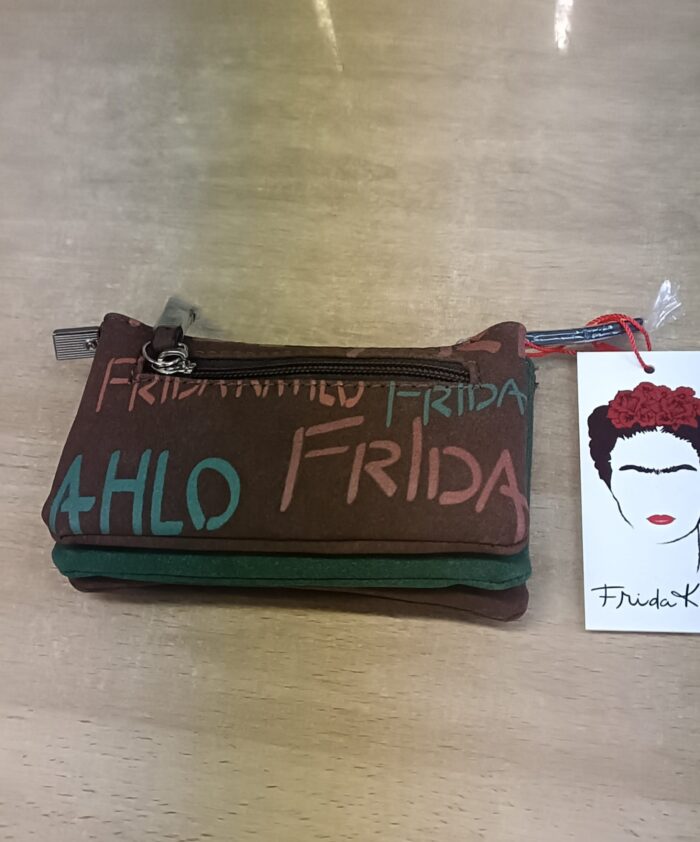 FRIDA KAHLO FRIDA
AHLO FRIDA
Frida K